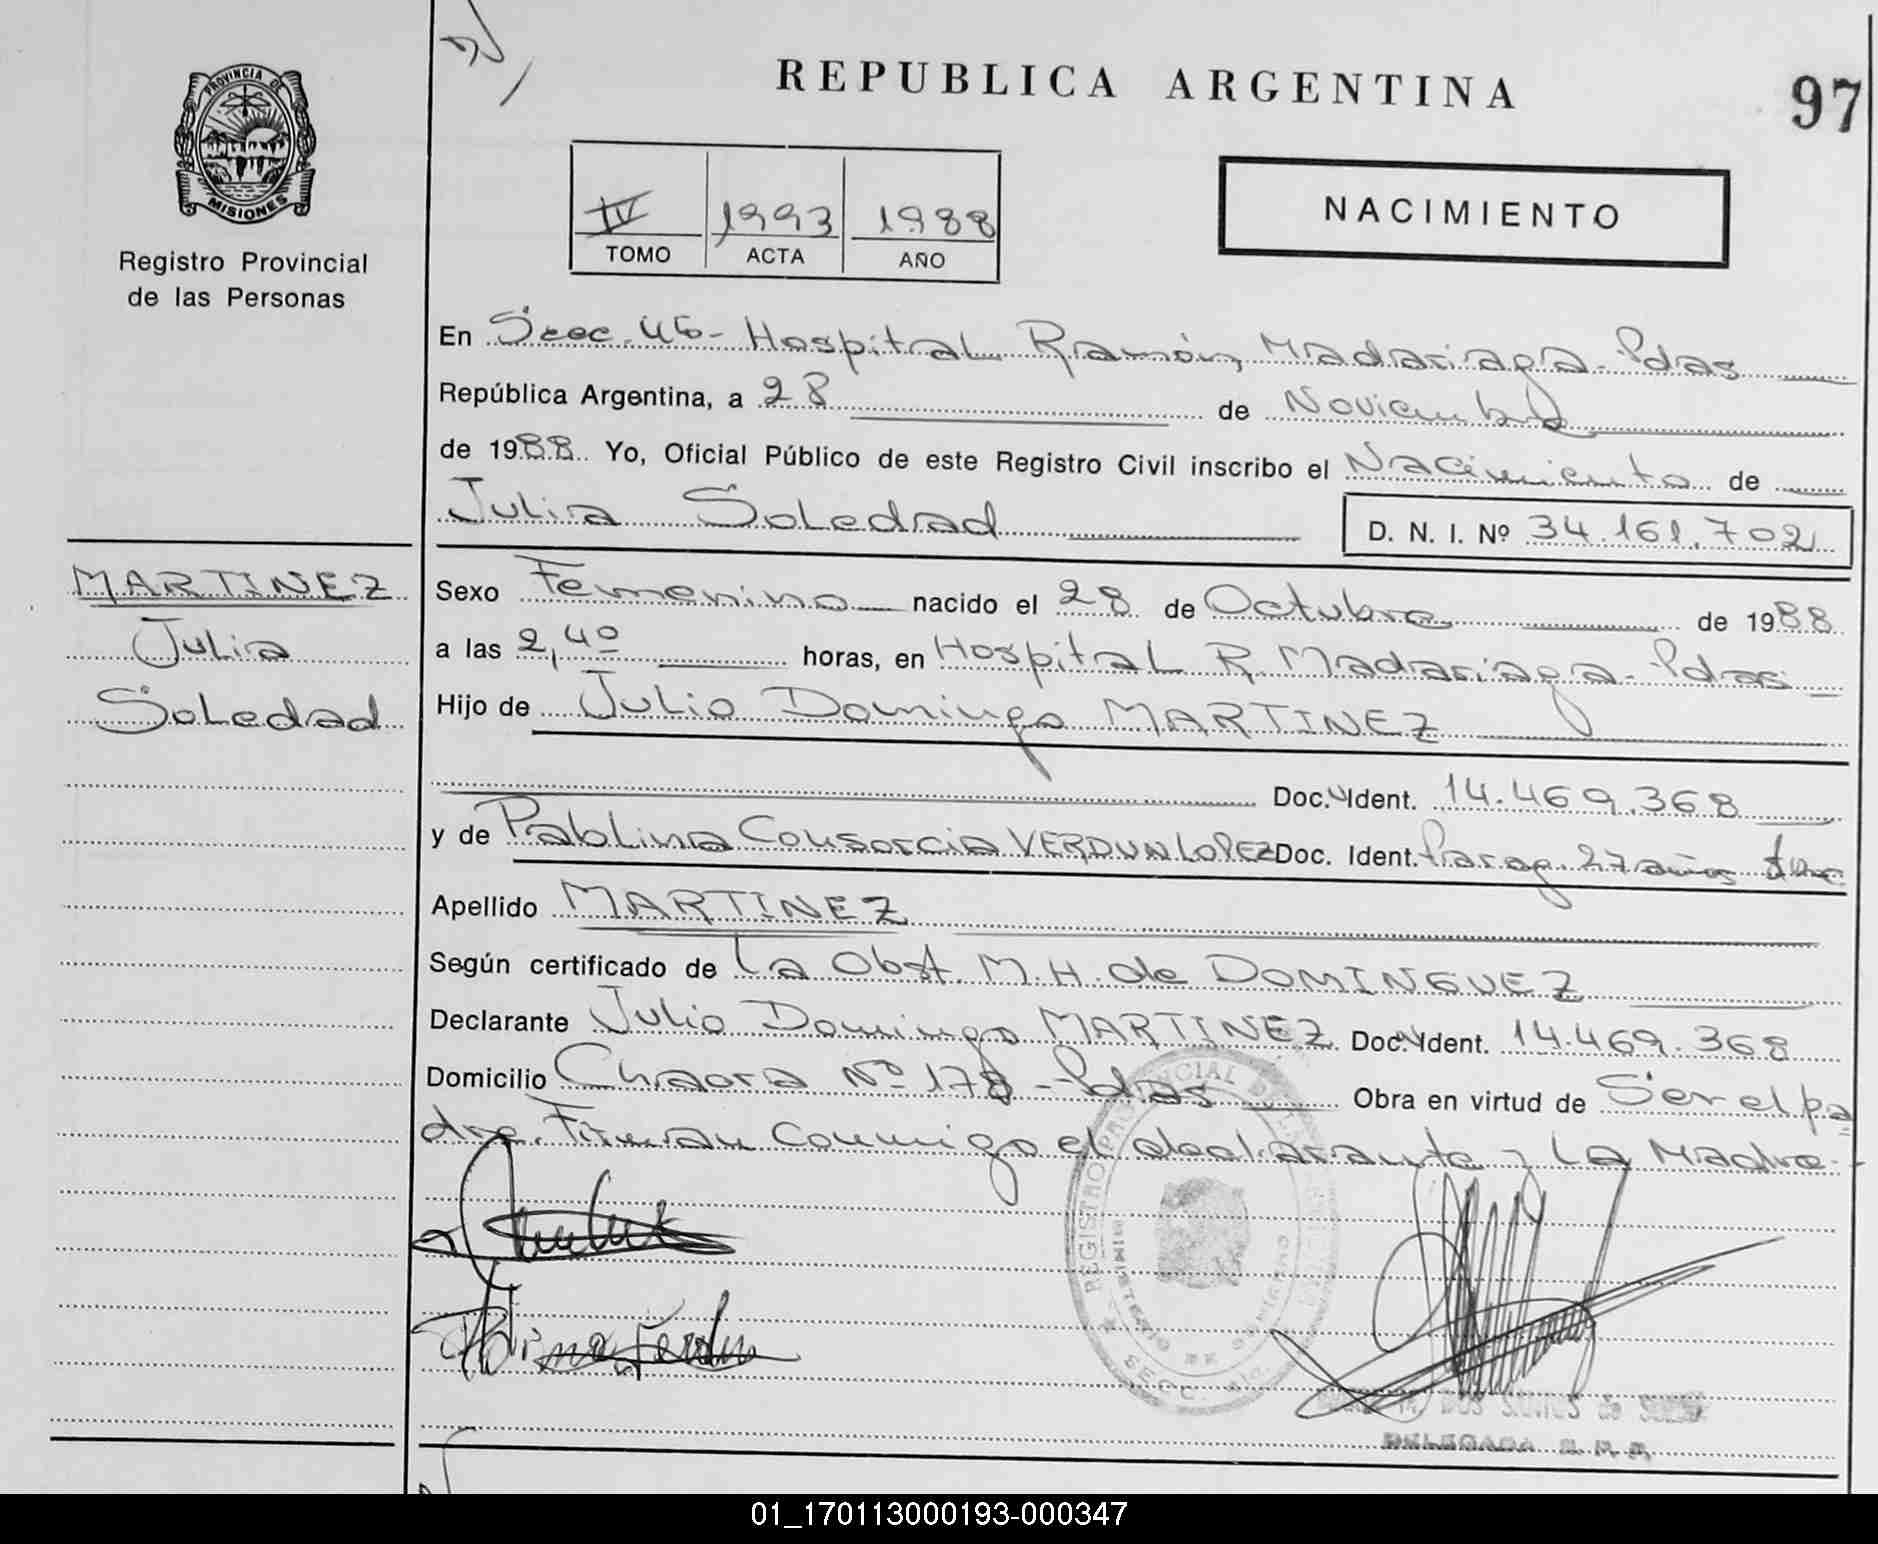 REPUBLICA ARGENTINA
97
PROVINCIA DE
MISIONES
Registro Provincial
de las Personas
IV 1993 1988
TOMO ACTA AÑO
NACIMIENTO
En Secc. 46- Hospital Ramón Madariaga - Pdas
República Argentina, a 28 de Noviembre
de 1988 Yo, Oficial Público de este Registro Civil inscribo el Nacimiento de
Julia Soledad D. N. I. Nº 34.161.702
MARTINEZ
Julia
Soledad
Sexo Femenino nacido el 28 de Octubre de 1988
a las 2,40 horas, en Hospital R. Madariaga - Pdas
Hijo de Julio Domingo MARTINEZ
Doc. Ident. 14.469.368
y de Pablina Consorcia VERDUN LOPEZ Doc. Ident. Parag. 27 años
Apellido MARTINEZ
Según certificado de La Obst. M. H. de DOMINGUEZ
Declarante Julio Domingo MARTINEZ Doc. Ident. 14.469.368
Domicilio Chacra Nº 178 - Pdas Obra en virtud de Ser el pa
dre. Firman conmigo el declarante y La Madre -
REGISTRO
SECC.
DOS SANTOS de
DELEGADA R. P. P.
01_170113000193-000347